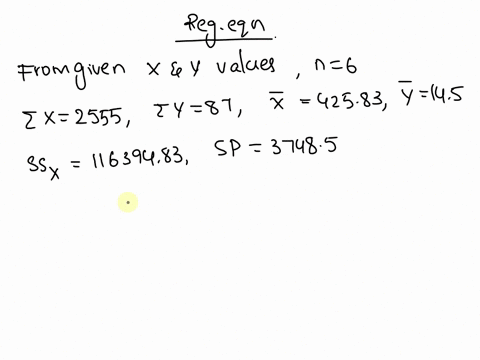 Reg.eqn.
From given X & Y values, n=6
ΣX=2555, ΣY=87, X̄ =425.83, Ȳ=14.5
SSx = 116394.83, SP = 3748.5